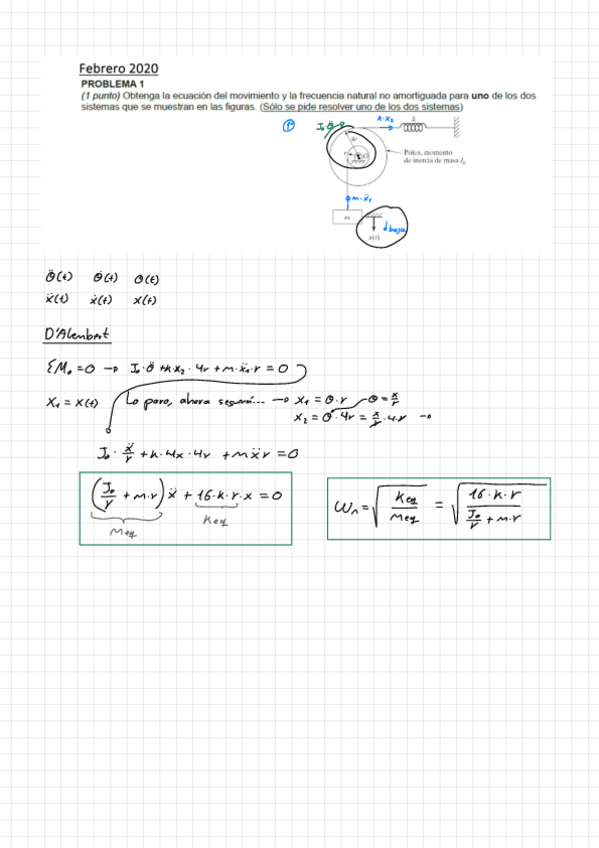 Febrero 2020
PROBLEMA 1
(1 punto) Obtenga la ecuación del movimiento y la frecuencia natural no amortiguada para uno de los dos
sistemas que se muestran en las figuras. (Sólo se pide resolver uno de los dos sistemas)
k·x₂
k
J₀ Θ̈
4r
r
O
Polea, momento
de inercia de masa J₀
m·ẍ₁
m
x(t)
baja
Θ̈(t) Θ̇(t) Θ(t)
ẍ(t) ẋ(t) x(t)
D'Alembert
ΣM₀ = 0 → J₀·Θ̈ + k x₂·4r + m·ẍ₁·r = 0
x₁ = x(t) Lo paro, ahora seguiré... → x₁ = Θ·r → Θ = x/r
x₂ = Θ·4r = x/r·4·r →
J₀·ẍ/r + k·4x·4r + mẍr = 0
(J₀/r + m·r) ẍ + 16·k·r·x = 0
Meq
Keq
ωₙ = √(Keq/Meq) = √(16·k·r/(J₀/r + m·r))